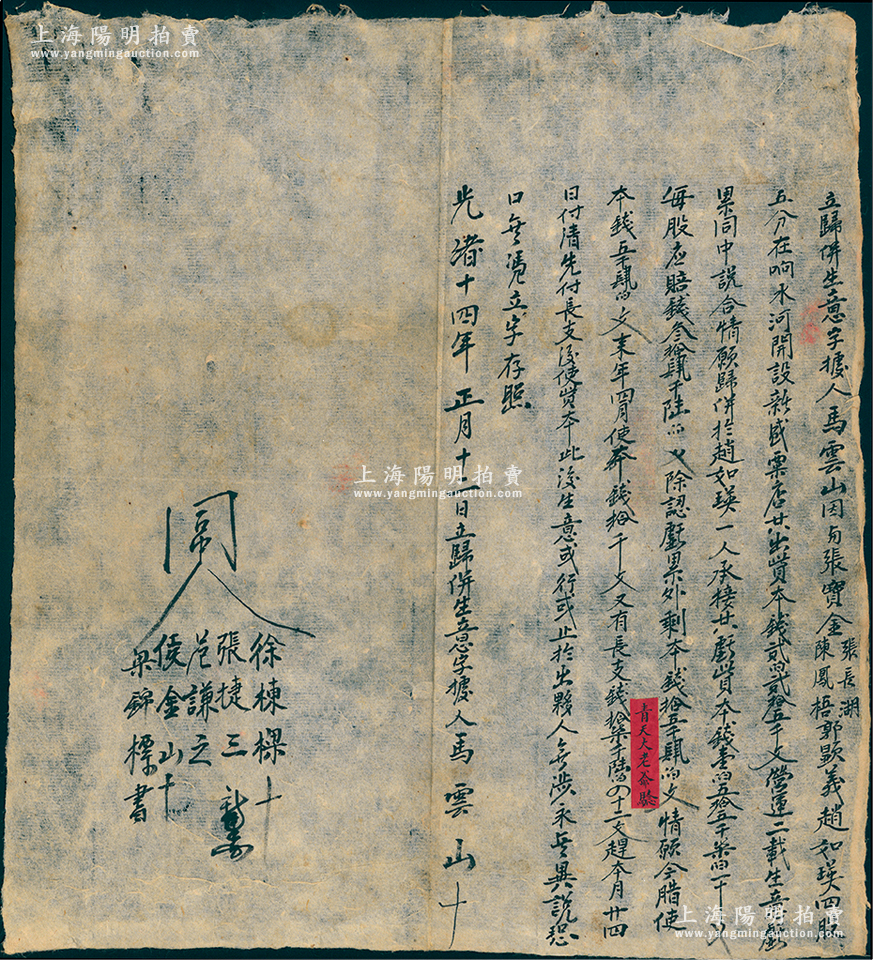 立歸併生意字據人馬雲山因与張寶金張長湖陳鳳梧郭顕義趙如瑛四股
五分在响水河開設新盛粟店共出貲本錢貳百貳拾五千文營運二載生意虧
累同中說合情願歸併於趙如瑛一人承接共虧貲本錢壹百五拾五千柒百一十文
每股应賠錢叁拾肆千陸百文除認虧累外剩本錢拾五千肆百文情願今腊使
本錢五千肆百文来年四月使本錢拾千文又有長支錢拾柒千陸百四十二文趕本月廿四
日付清先付長支後使貲本此後生意或行或止於出夥人無涉永無異說恐
口無憑立字存照
光緒十四年正月十一日立歸併生意字據人馬雲山十
青天大老爺驗
同人
徐棟樑十
張捷三
范謙之
侯金山十
梁錦標書
上海陽明拍賣
www.yangmingauction.com
上海陽明拍賣
www.yangmingauction.com
上海陽明拍賣
www.yangmingauction.com